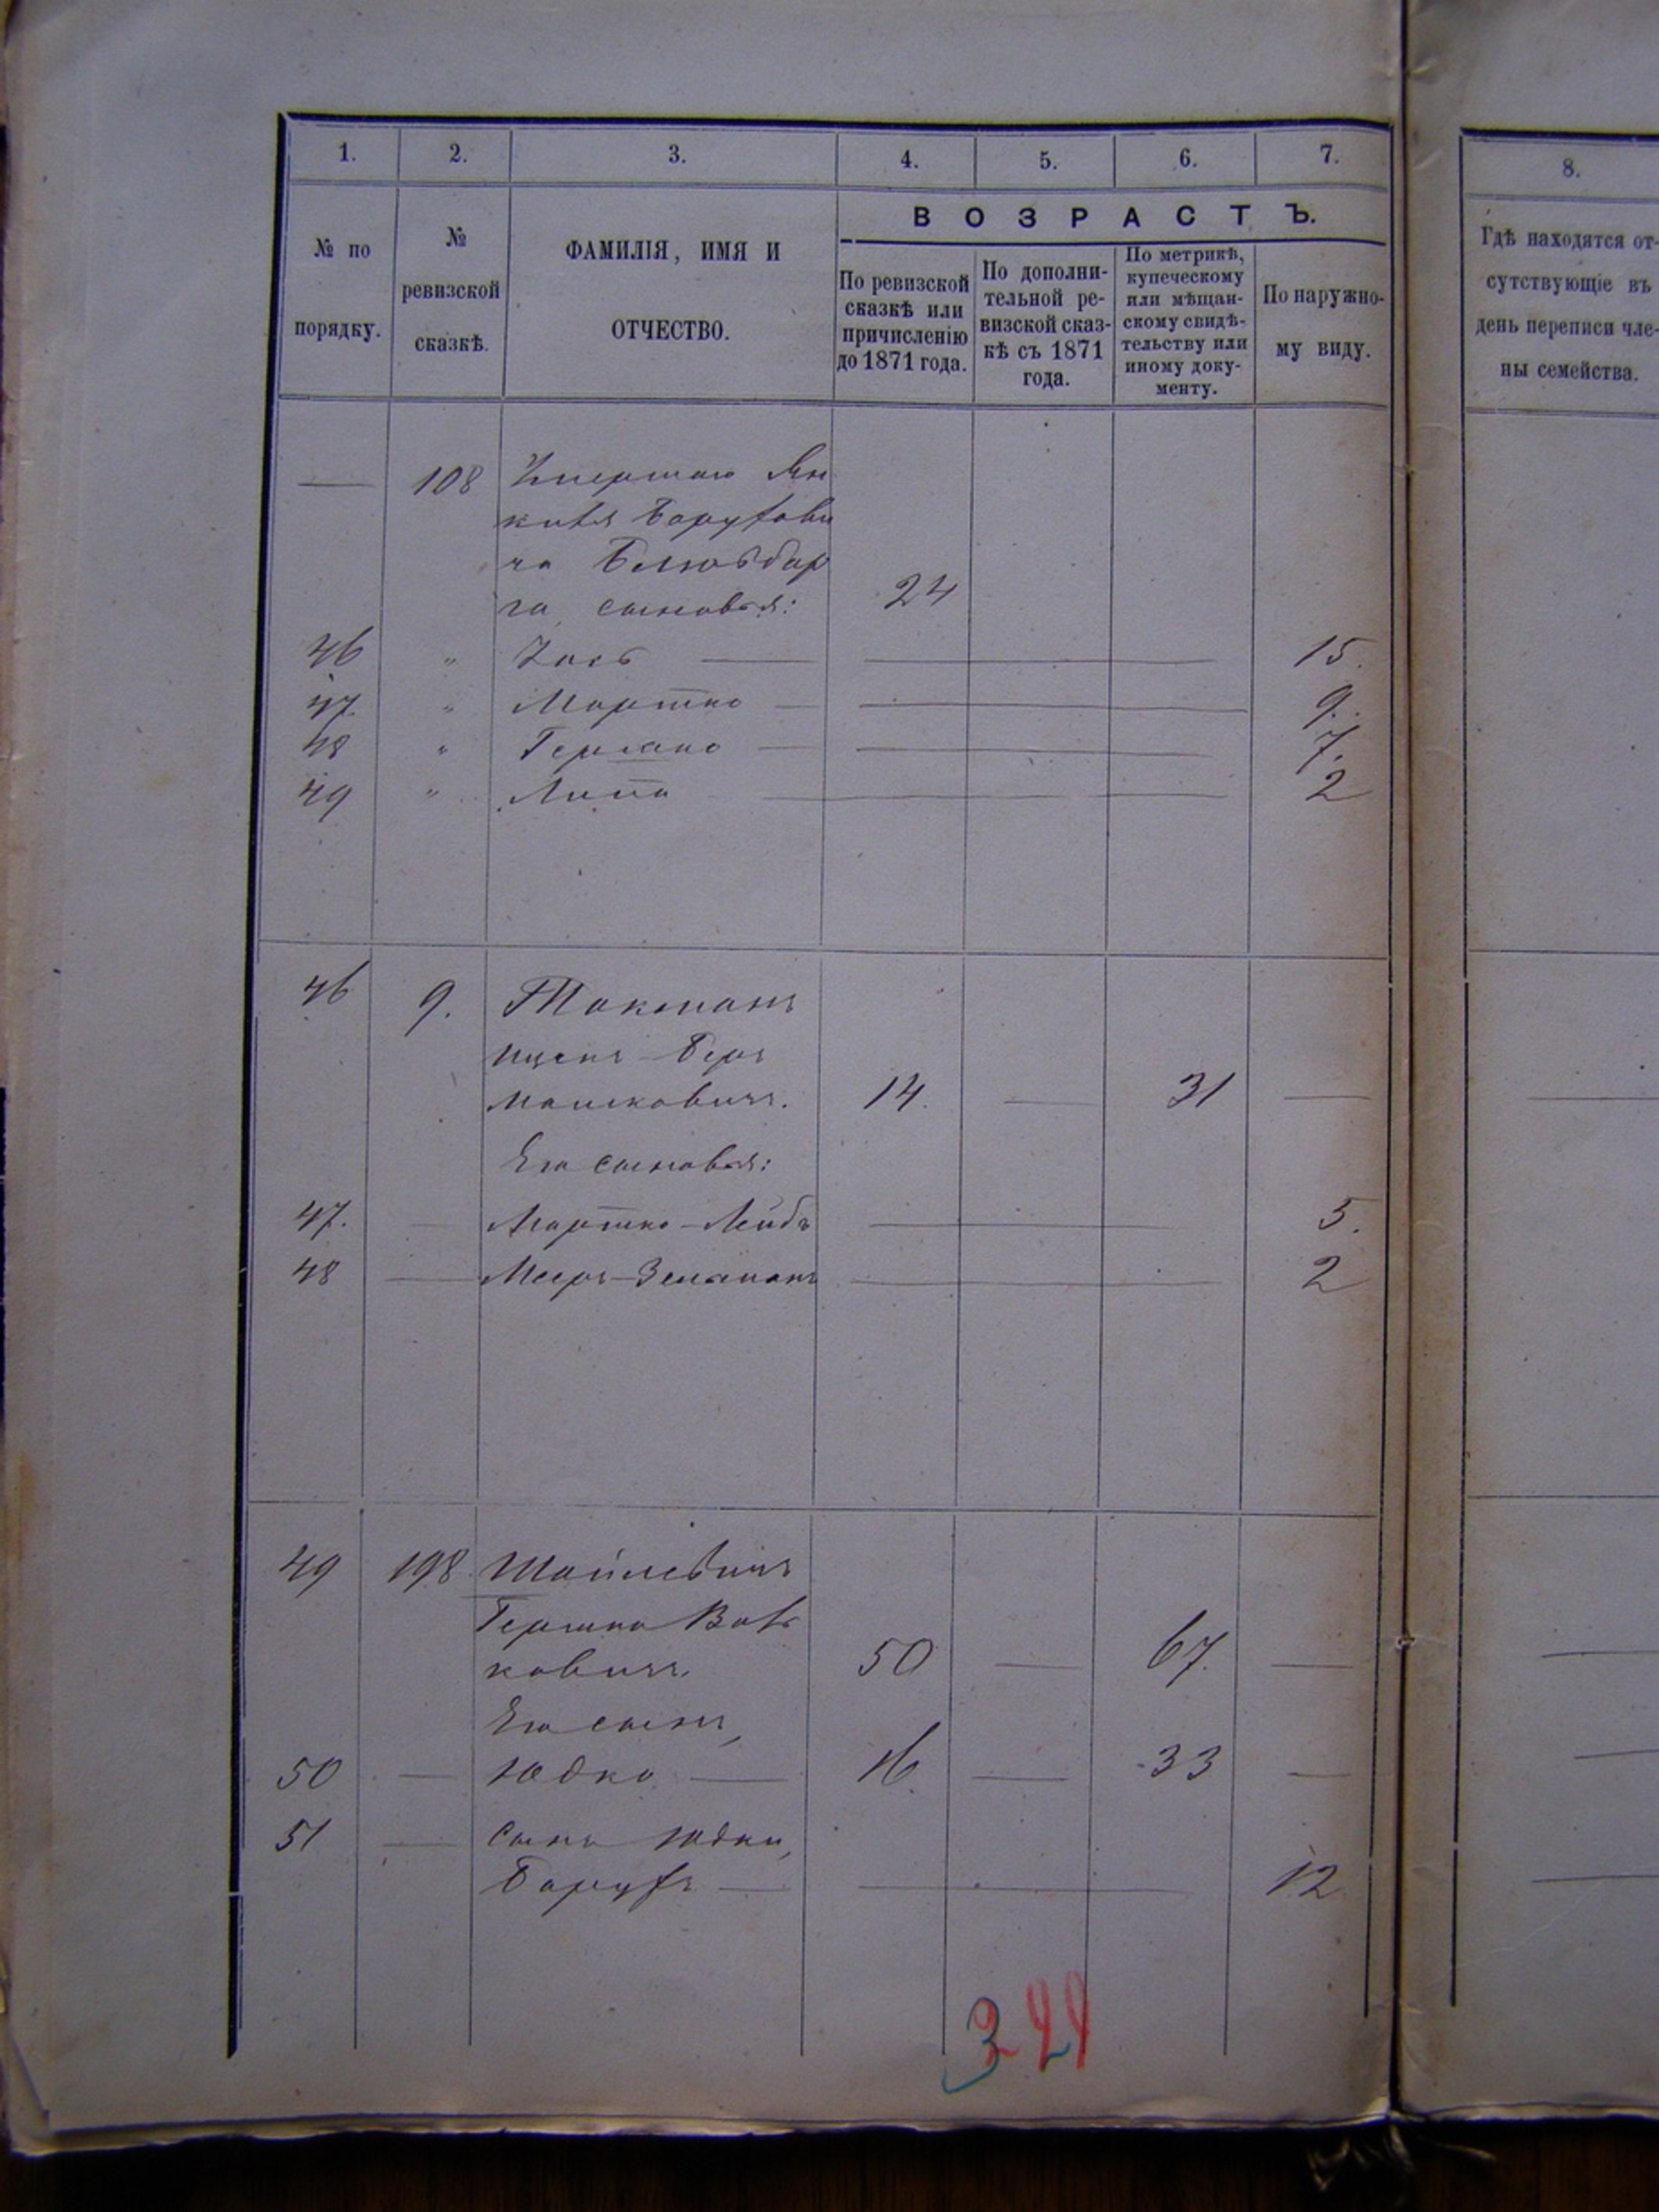 1. 2. 3. 4. 5. 6. 7. 8.
№ по порядку.
№ ревизской сказкѣ.
ФАМИЛІЯ, ИМЯ И
ОТЧЕСТВО.
ВОЗРАСТЪ.
По ревизской
сказкѣ или
причисленію
до 1871 года.
По дополни-
тельной ре-
визской сказ-
кѣ съ 1871
года.
По метрикѣ,
купеческому
или мѣщан-
скому свидѣ-
тельству или
иному доку-
менту.
По наружно-
му виду.
Гдѣ находятся от-
сутствующіе въ
день переписи чле-
ны семейства.
— 108 Умершаго Ян
келя Борухови
ча
га сыновья: 24
46 " — 15.
47 " Мортко — 9.
48 " Гершко — 7.
49 " Липа — 2
46 9. Токманъ
Ицекъ-Беръ
Мошковичъ. 14. — 31 —
Его сыновья:
47. — Мортко-Лейбъ — 5.
48 — Мееръ-Зельманъ — 2
49 198. 
Гершко Воль
ковичъ. 50 — 67. —
Его сынъ,
50 — Юдко — 16. — 33 —
51 — Сынъ Юдки,
Борухъ — 12